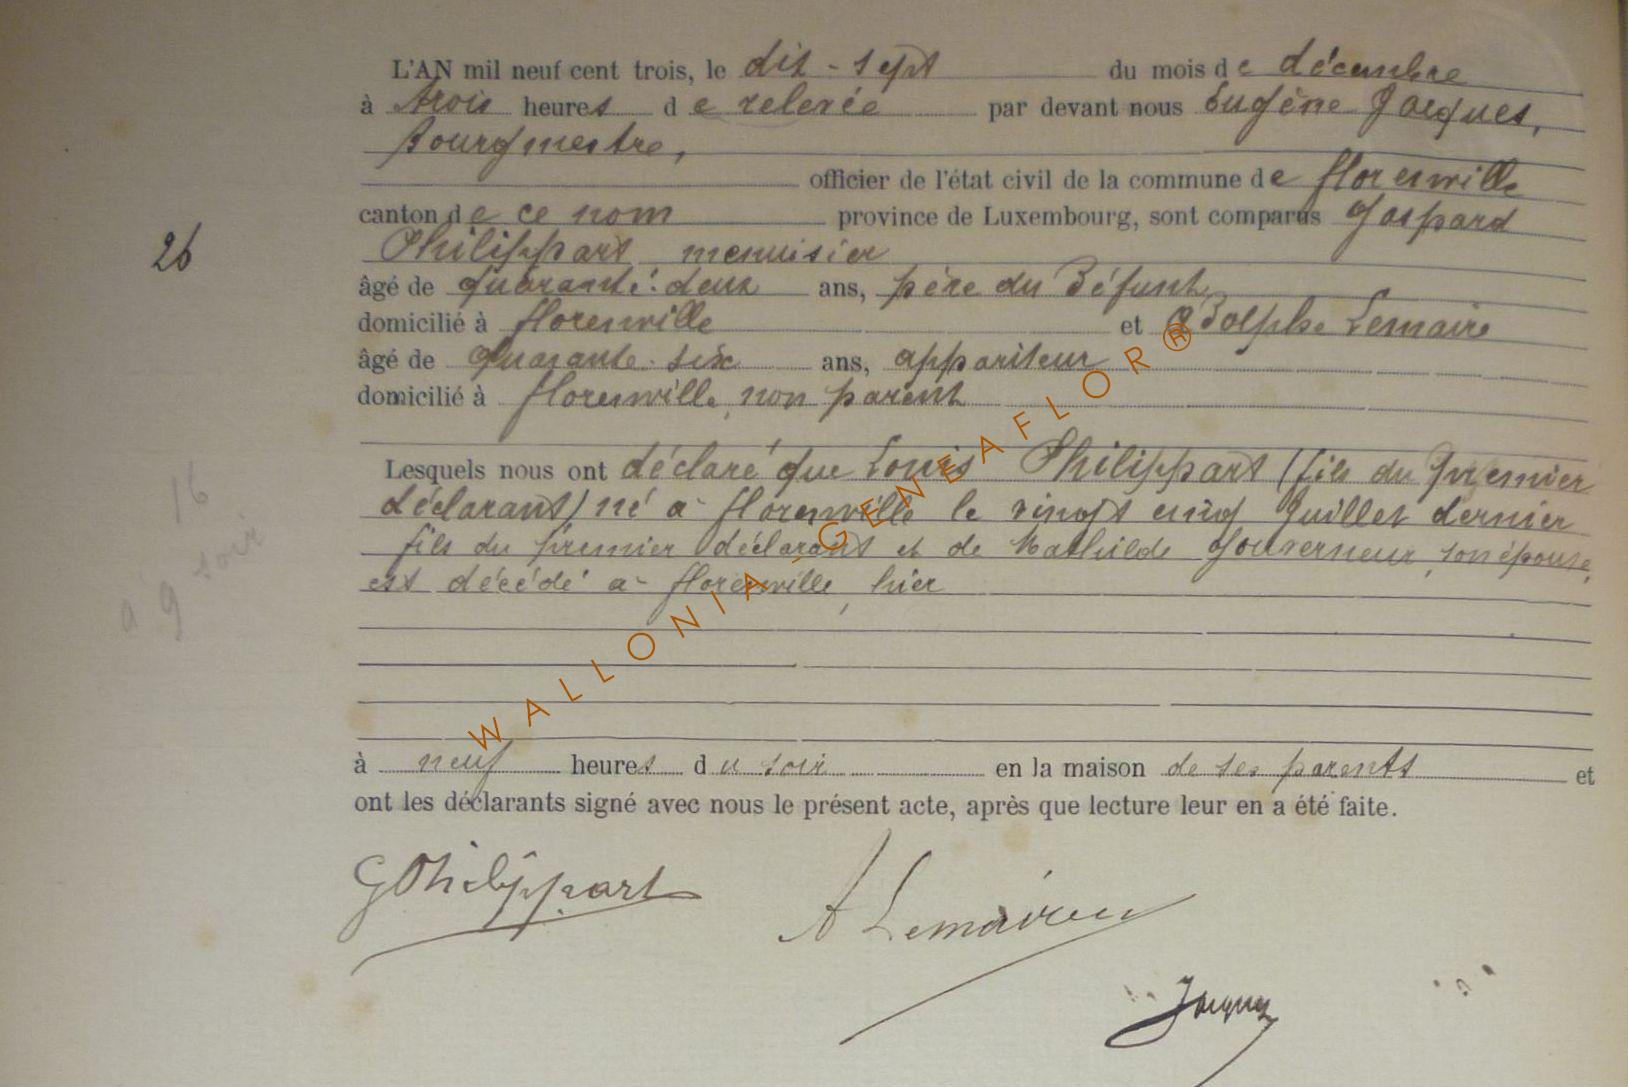 L'AN mil neuf cent trois, le dix-sept du mois de décembre
à trois heures de relevée par devant nous Eugène Jacques,
Bourgmestre,
officier de l'état civil de la commune de Florenville
canton de ce nom province de Luxembourg, sont comparus Gaspard
26
Philippart menuisier
âgé de quarante-deux ans, père du défunt,
domicilié à Florenville et Adolphe Lemaire
âgé de quarante-six ans, appariteur
domicilié à Florenville, non parent
Lesquels nous ont déclaré que Louis Philippart (fils du premier
déclarant) né à Florenville le vingt cinq Juillet dernier
fils du premier déclarant et de Mathilde Gouverneur, son épouse,
est décédé à Florenville, hier
16
à 9 soir
à neuf heures du soir en la maison de ses parents et
ont les déclarants signé avec nous le présent acte, après que lecture leur en a été faite.
GPhilippart
A Lemaire
Jacques
WALLONIA-GENEAFLOR®